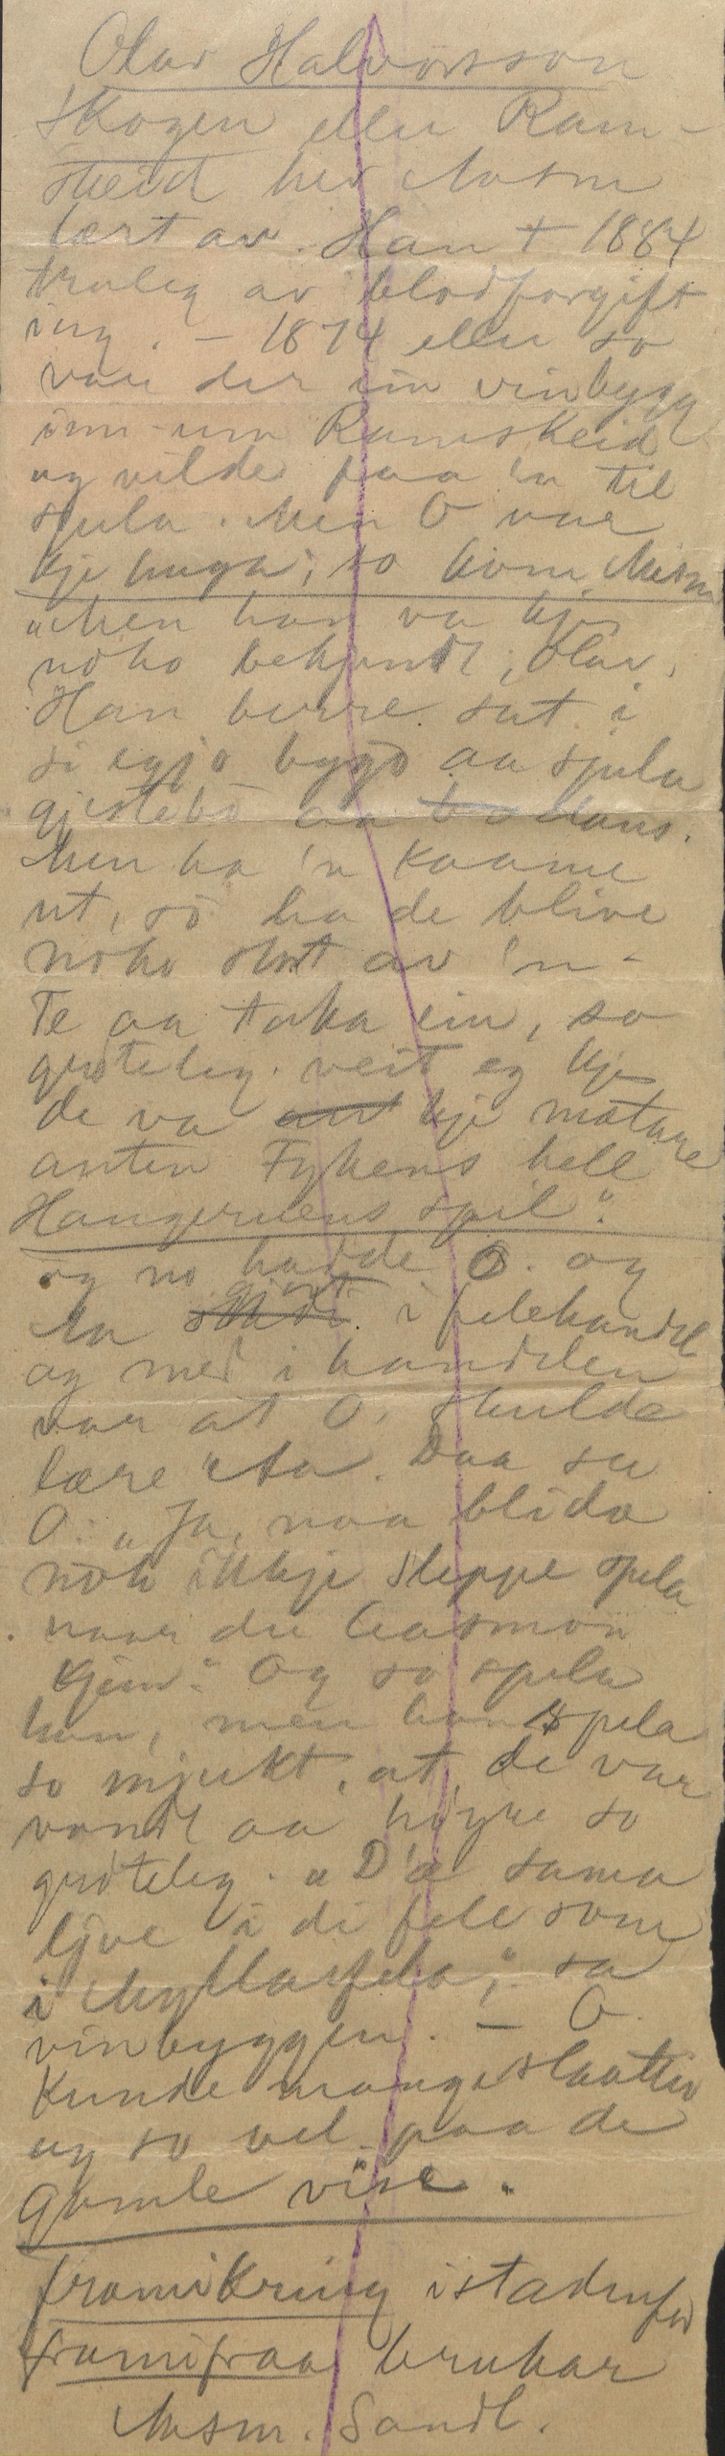 Olav Halvorsson
Skogen eller Ram-
skeid hev Aasm
lært av. Han + 1884
truleg av blodforgift
ing. - 1874 eller so
var der ein vinbygg
inn-um Ramskeid
og vilde faa 'n til
spela. Men O var
kje huga; so kom Aasm
"Men han va kje
noko bekjendt, Olav.
Han berre sat i
si eigjo bygd aa spela
gjestebo aa dans.
Men ha 'n kaame
ut, so ha de blive
noko stort av 'n -
Te aa taka ein, so
grøteleg veit eg kje
de va kje møtare
anten Fykens hell
Haugeruens spil".
og no hadde O. og
Aa gjort i felehandel
og med i handelen
var at O. skulde
lære Aa. Daa sa
O: "Ja, naa blide
nok ikkje sleppe spela
naar du Aasmon
kjem." Og so spela
han, men han spela
so mjukt, at de var
vondt aa høyre so
grøteleg. "D'æ sama
ljoe i di fele som
i Myllarfela", sa
vinbyggen. - O.
kunde mange slaatter
og so vel paa de
gamle vise.
framikring istadenfor
framifraa brukar
Aasm. Sandl.